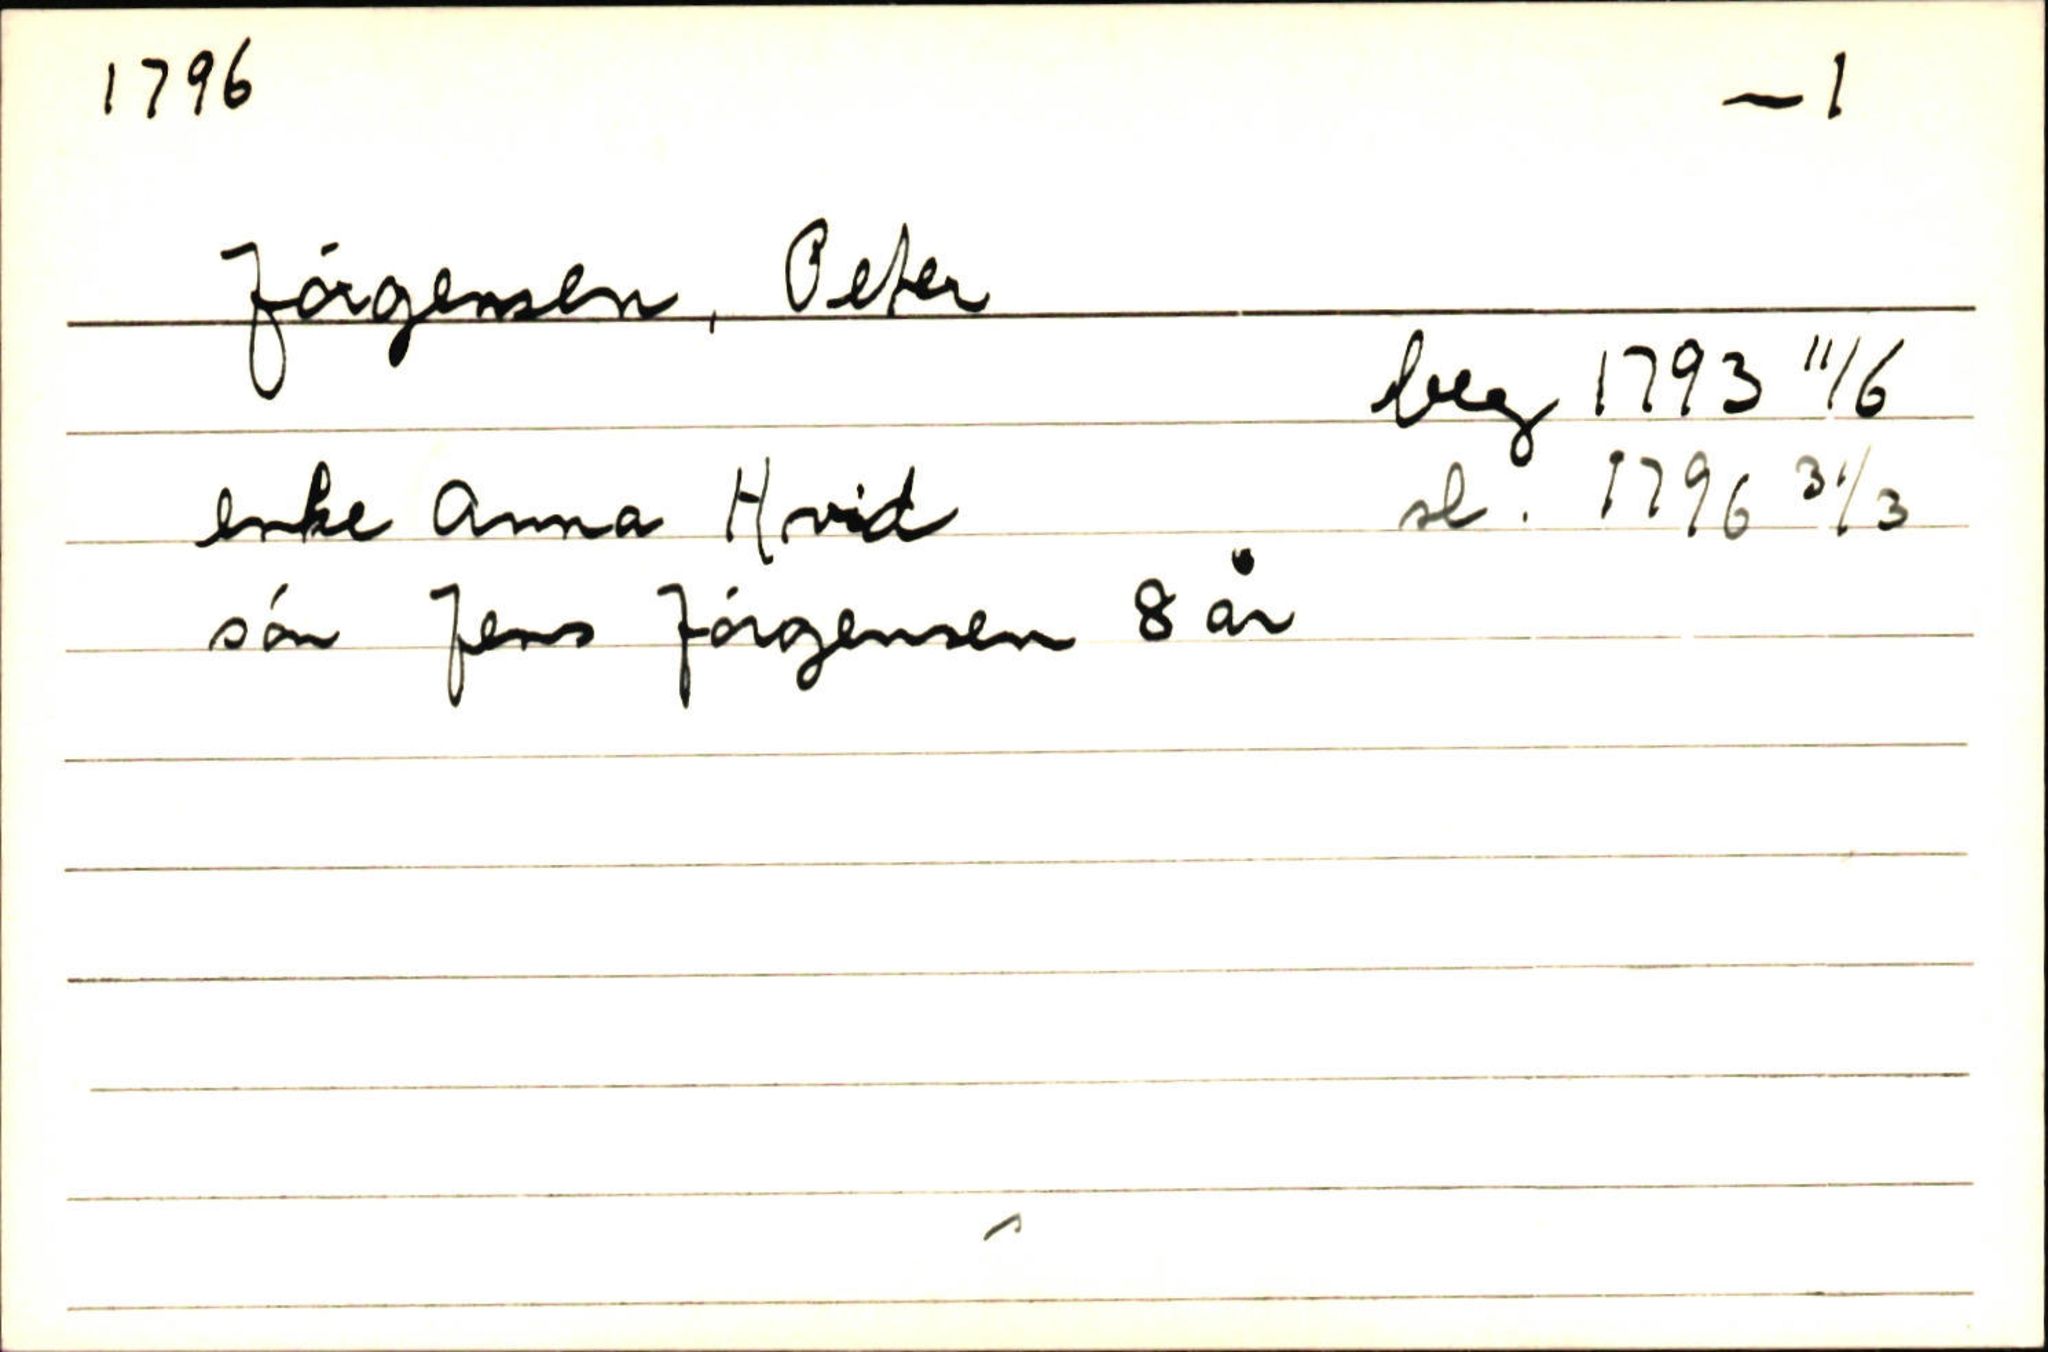 1796 ~1
Jórgensen, Peter
beg 1793 11/6
enke Anna Hvid sl. 1796 31/3
són Jens Jórgensen 8 år